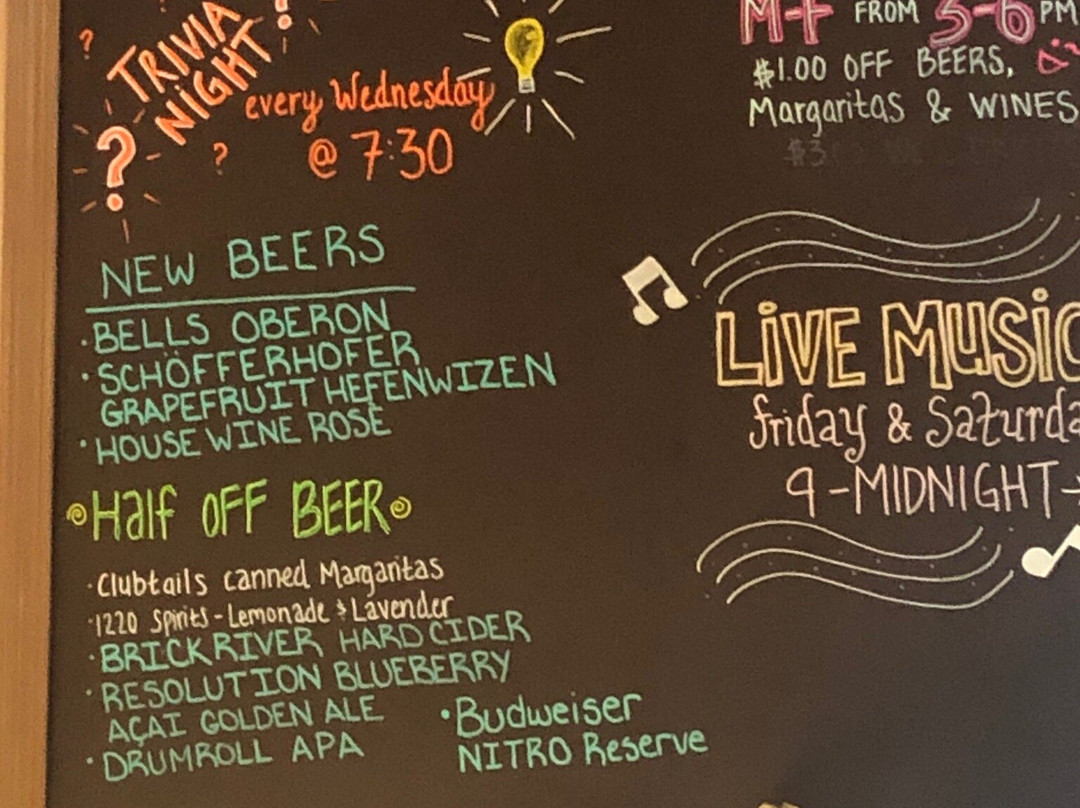 TRIVIA
NIGHT!
every Wednesday
@ 7:30
?
?
?
NEW BEERS
· BELLS OBERON
· SCHÖFFERHOFER
GRAPEFRUIT HEFENWIZEN
· HOUSE WINE ROSÈ
Half OFF BEER
· Clubtails canned Margaritas
· 1220 Spirits - Lemonade & Lavender
· BRICK RIVER HARD CIDER
· RESOLUTION BLUEBERRY
AÇAI GOLDEN ALE
· DRUMROLL APA
· Budweiser
NITRO Reserve
M-F FROM 3-6 PM
$1.00 OFF BEERS,
Margaritas & WINES
LiVE MUSiC
friday & Saturda
9-MIDNIGHT